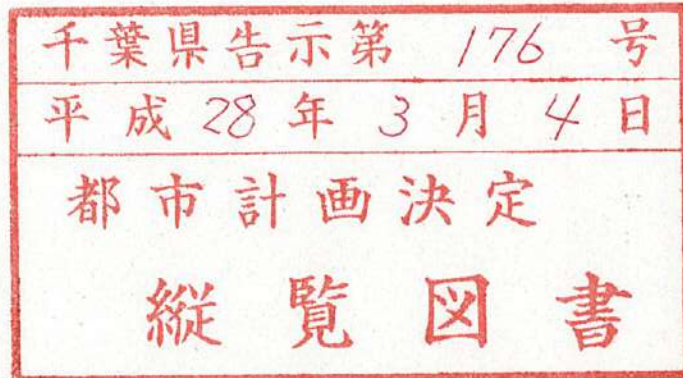 千葉県告示第 176 号
平成 28 年 3 月 4 日
都市計画決定
縦覧図書